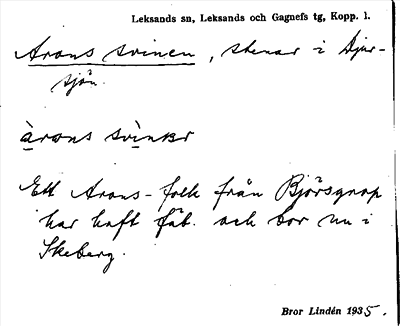 Leksands sn, Leksands och Gagnefs tg, Kopp. l.
Arons svinen, stenar i Djur-
sjön.
àrons svìnər
Ett Arons-folk från Björsgnap
har haft fäb. och bor nu i
Skeberg.
Bror Lindén 1935.